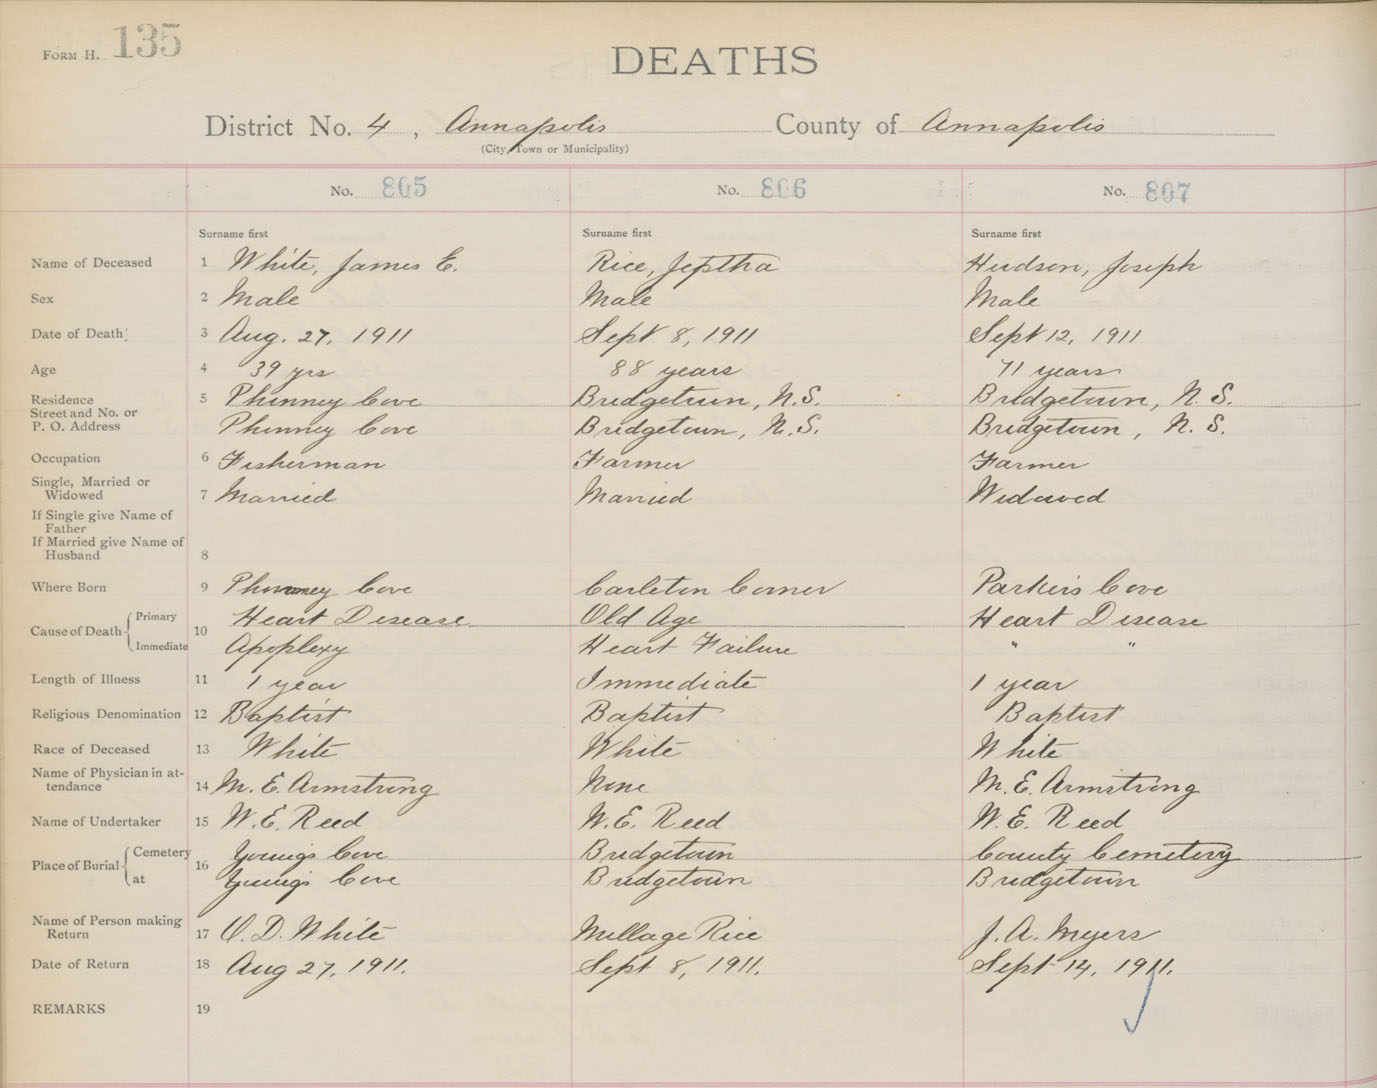 FORM H. 135
DEATHS
District No. 4, Annapolis County of Annapolis
(City, Town or Municipality)
No. 805 No. 806 No. 807
Surname first Surname first Surname first
Name of Deceased 1 White, James E. Rice, Jeptha Hudson, Joseph
Sex 2 Male Male Male
Date of Death 3 Aug. 27, 1911 Sept 8, 1911 Sept 12, 1911
Age 4 39 yrs 88 years 71 years
Residence 5 Phinney Cove Bridgetown, N.S. Bridgetown, N.S.
Street and No. or
P. O. Address Phinney Cove Bridgetown, N.S. Bridgetown, N.S.
Occupation 6 Fisherman Farmer Farmer
Single, Married or
Widowed 7 Married Married Widowed
If Single give Name of
Father
If Married give Name of
Husband 8
Where Born 9 Phinney Cove Carleton Corner Parkers Cove
Cause of Death Primary 10 Heart Disease Old Age Heart Disease
Immediate Apoplexy Heart Failure " "
Length of Illness 11 1 year Immediate 1 year
Religious Denomination 12 Baptist Baptist Baptist
Race of Deceased 13 White White White
Name of Physician in at-
tendance 14 M. E. Armstrong None M. E. Armstrong
Name of Undertaker 15 W. E. Reed W. E. Reed W. E. Reed
Place of Burial Cemetery 16 Young's Cove Bridgetown County Cemetery
at Young's Cove Bridgetown Bridgetown
Name of Person making
Return 17 O. D. White Millage Rice J. A. Myers
Date of Return 18 Aug 27, 1911. Sept 8, 1911. Sept 14, 1911.
REMARKS 19